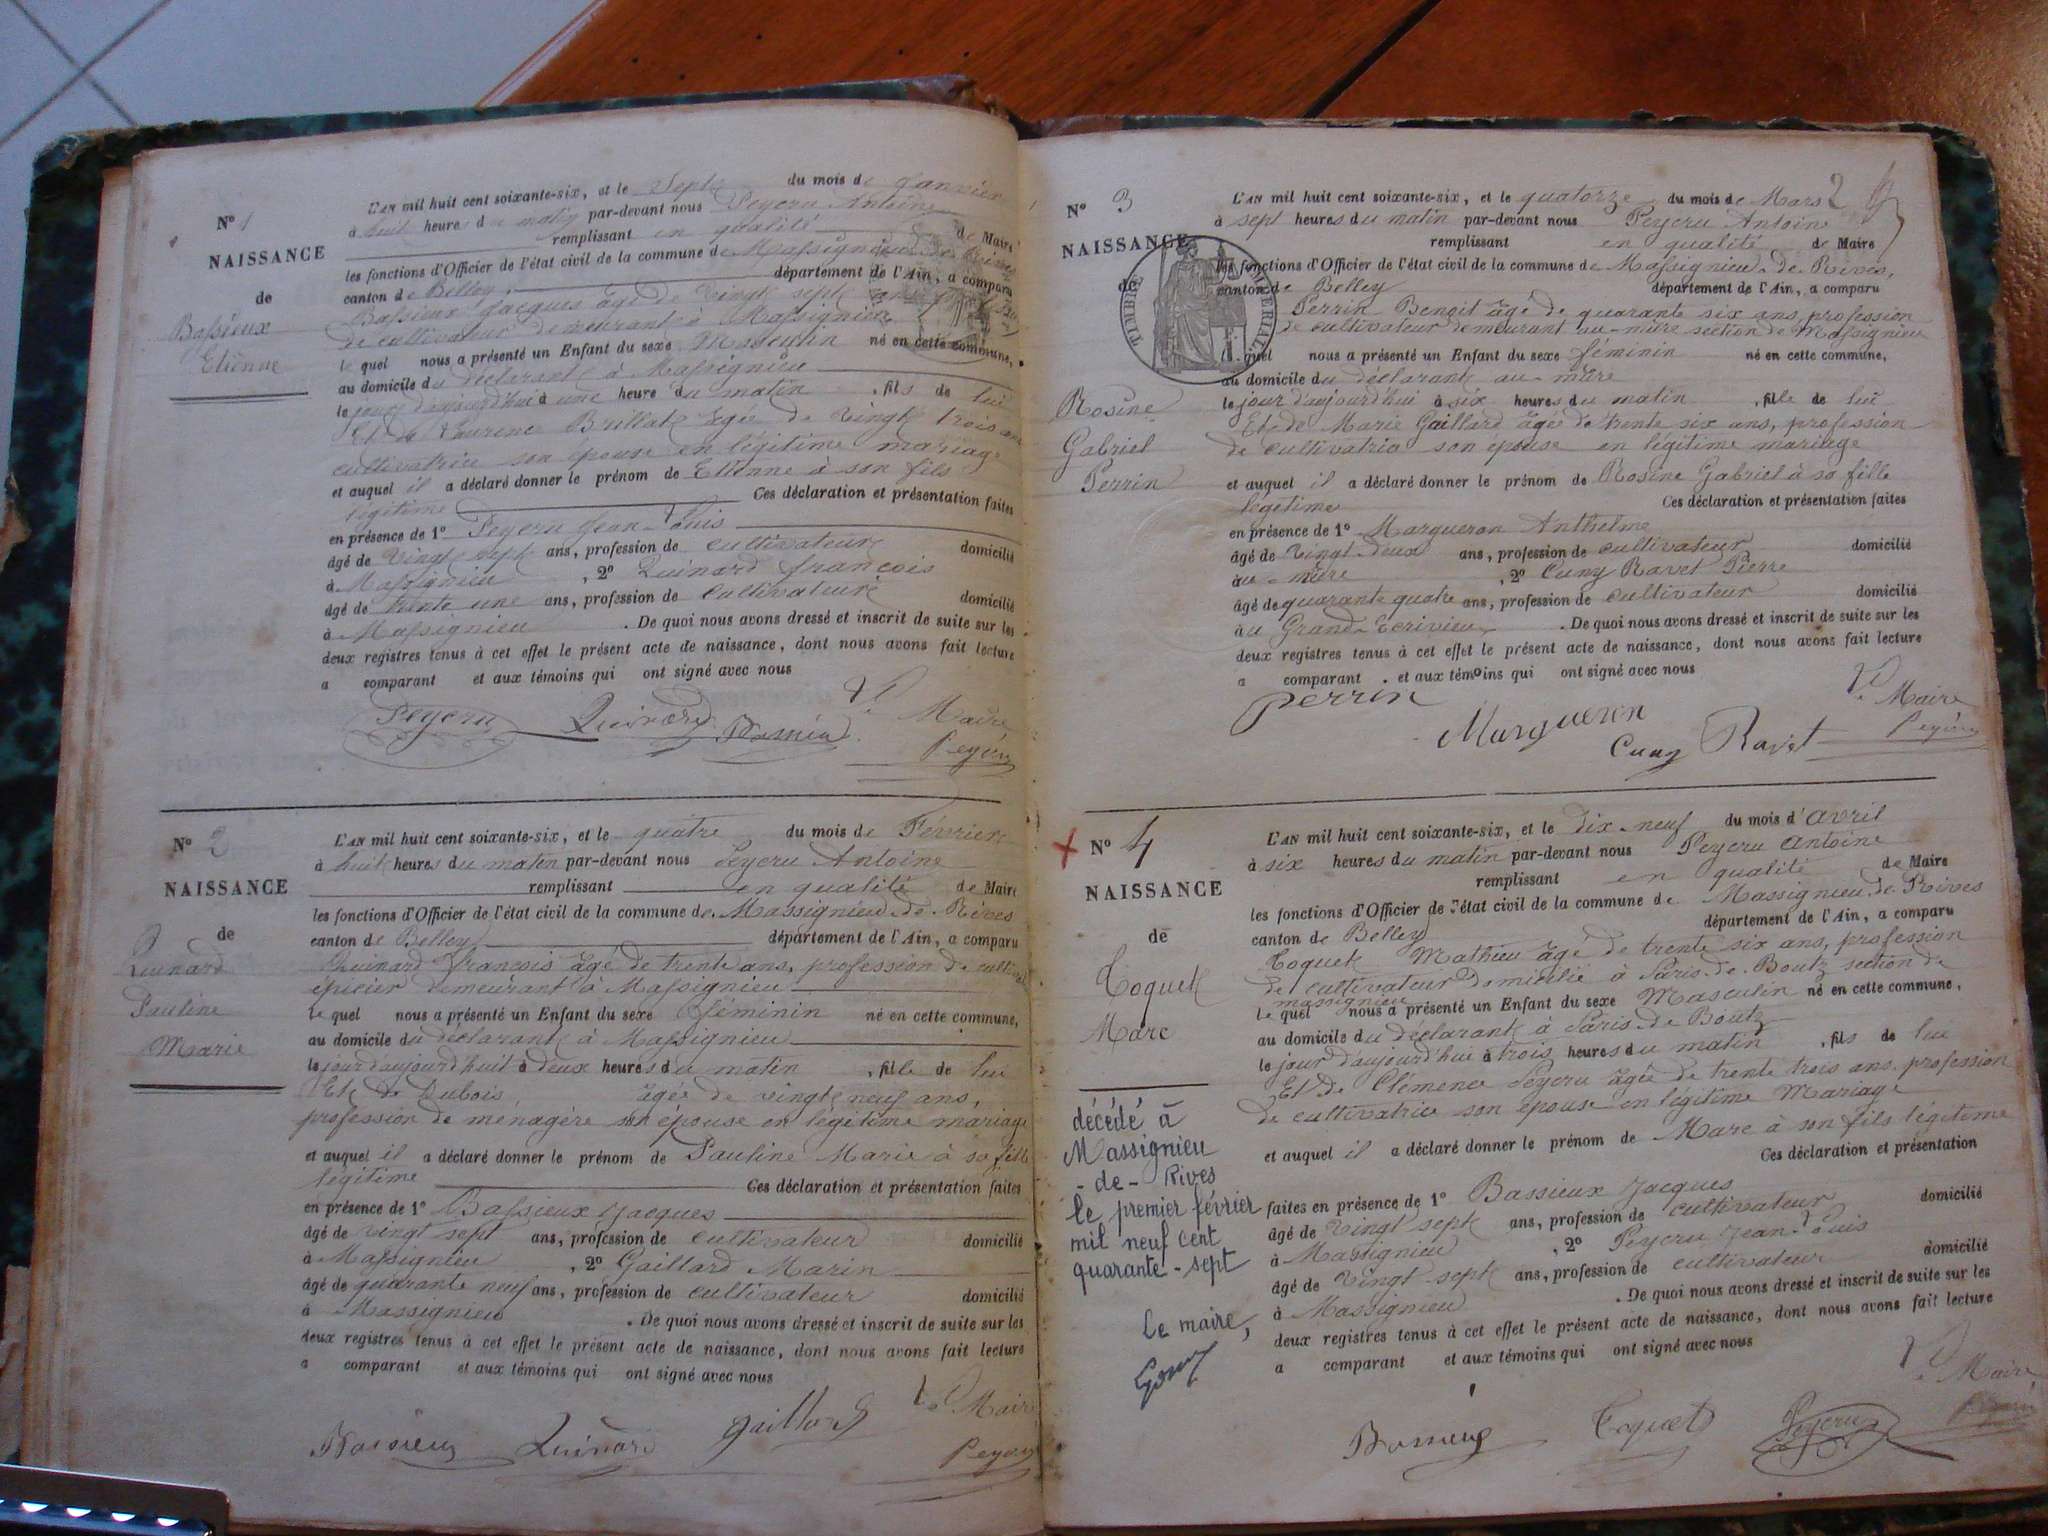 N° 1
NAISSANCE
de
Bassieux
Etienne
L'AN mil huit cent soixante-six, et le Sept du mois de Janvier
à huit heures du matin par-devant nous Peycru Antoine
remplissant en qualité de Maire
les fonctions d'Officier de l'état civil de la commune de Massignieu de Rives
canton de Belley département de l'Ain, a comparu
Bassieux Jacques âgé de vingt sept ans profession
de cultivateur demeurant à Massignieu
le quel nous a présenté un Enfant du sexe Masculin né en cette commune,
au domicile du déclarant à Massignieu
le jour d'aujourd'hui à une heure du matin, fils de lui
Et de Laurence Brillat âgée de vingt trois ans
cultivatrice son épouse en légitime mariage
et auquel il a déclaré donner le prénom de Etienne à son fils
légitime Ces déclaration et présentation faites
en présence de 1° Peycru Jean-Louis
âgé de vingt sept ans, profession de cultivateur domicilié
à Massignieu, 2° Quinard françois
âgé de trente une ans, profession de cultivateur domicilié
à Massignieu. De quoi nous avons dressé et inscrit de suite sur les
deux registres tenus à cet effet le présent acte de naissance, dont nous avons fait lecture
a comparant et aux témoins qui ont signé avec nous
Le Maire
Peycru Quinard Bassieu Peycru
N° 2
NAISSANCE
de
Quinard
Pauline
Marie
L'AN mil huit cent soixante-six, et le quatre du mois de Février
à huit heures du matin par-devant nous Peycru Antoine
remplissant en qualité de Maire
les fonctions d'Officier de l'état civil de la commune de Massignieu de Rives
canton de Belley département de l'Ain, a comparu
Quinard françois âgé de trente ans, profession de
épicier demeurant à Massignieu
le quel nous a présenté un Enfant du sexe féminin né en cette commune,
au domicile du déclarant à Massignieu
le jour d'aujourd'huit à deux heures du matin, fille de lui
Et de Dubois âgée de vingt neuf ans,
profession de ménagère son épouse en légitime mariage
et auquel il a déclaré donner le prénom de Pauline Marie à sa fille
légitime Ces déclaration et présentation faites
en présence de 1° Bassieux Jacques
âgé de vingt sept ans, profession de cultivateur domicilié
à Massignieu, 2° Gaillard Marin
âgé de quarante neuf ans, profession de cultivateur domicilié
à Massignieu. De quoi nous avons dressé et inscrit de suite sur les
deux registres tenus à cet effet le présent acte de naissance, dont nous avons fait lecture
a comparant et aux témoins qui ont signé avec nous
Le Maire
Bassieux Quinard Gaillard Peycru
2
N° 3
NAISSANCE
de
TIMBRE IMPERIAL
Rosine
Gabriel
Perrin
L'AN mil huit cent soixante-six, et le quatorze du mois de Mars
à sept heures du matin par-devant nous Peycru Antoine
remplissant en qualité de Maire
les fonctions d'Officier de l'état civil de la commune de Massignieu de Rives,
canton de Belley département de l'Ain, a comparu
Perrin Benoit âgé de quarante six ans, profession
de cultivateur demeurant au mûre section de Massignieu
le quel nous a présenté un Enfant du sexe féminin né en cette commune,
au domicile du déclarant au mûre
le jour d'aujourd'hui à six heures du matin, fille de lui
Et de Marie Gaillard âgée de trente six ans, profession
de cultivatrice son épouse en légitime mariage
et auquel il a déclaré donner le prénom de Rosine Gabriel à sa fille
légitime Ces déclaration et présentation faites
en présence de 1° Margueron Anthelme
âgé de vingt deux ans, profession de cultivateur domicilié
au mûre, 2° Cuny Ravet Pierre
âgé de quarante quatre ans, profession de cultivateur domicilié
au Grand Ecrivieu. De quoi nous avons dressé et inscrit de suite sur les
deux registres tenus à cet effet le présent acte de naissance, dont nous avons fait lecture
a comparant et aux témoins qui ont signé avec nous
Le Maire
Perrin Margueron Cuny Ravet Peycru
N° 4
NAISSANCE
de
Toquet
Marc
décédé à
Massignieu
-de- Rives
le premier février
mil neuf cent
quarante-sept
Le maire,
L'AN mil huit cent soixante-six, et le dix-neuf du mois d'avril
à six heures du matin par-devant nous Peycru Antoine
remplissant en qualité de Maire
les fonctions d'Officier de l'état civil de la commune de Massignieu de Rives
canton de Belley département de l'Ain, a comparu
Toquet Mathieu âgé de trente six ans, profession
de cultivateur domicilié à Paris de Boutz section de
massignieu
le quel nous a présenté un Enfant du sexe Masculin né en cette commune,
au domicile du déclarant à Paris de Boutz
le jour d'aujourd'hui à trois heures du matin, fils de lui
Et de Clémence Peycru âgée de trente trois ans, profession
de cultivatrice son épouse en légitime Mariage
et auquel il a déclaré donner le prénom de Marc à son fils légitime
Ces déclaration et présentation
faites en présence de 1° Bassieux Jacques
âgé de vingt sept ans, profession de cultivateur domicilié
à Massignieu, 2° Peycru Jean Louis
âgé de vingt sept ans, profession de cultivateur domicilié
à Massignieu. De quoi nous avons dressé et inscrit de suite sur les
deux registres tenus à cet effet le présent acte de naissance, dont nous avons fait lecture
a comparant et aux témoins qui ont signé avec nous
Le Maire
Bassieux Toquet Peycru Peycru